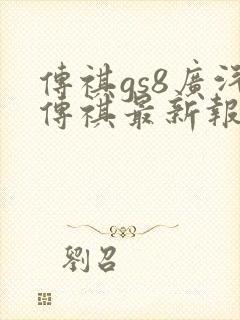 傳祺gs8廣汽
傳祺最新報
劉召